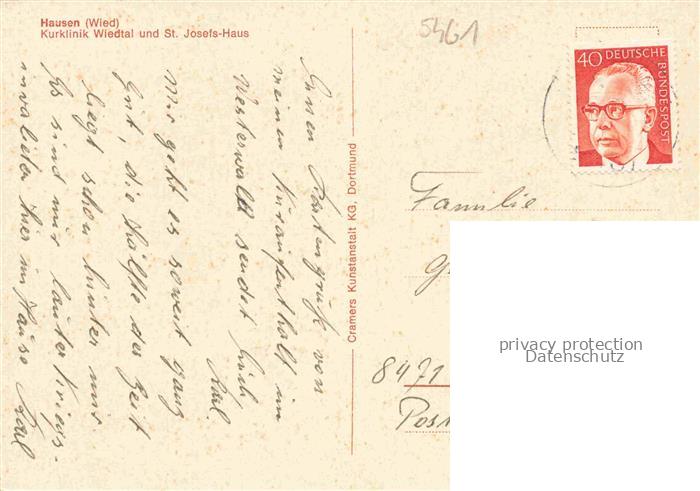 Hausen (Wied)
Kurklinik Wiedtal und St. Josefs-Haus
5461
40 DEUTSCHE BUNDESPOST
Einen Kartengruß von
meinem Kuraufenthalt im
Westerwald sendet Euch
Karl.
Mir geht es soweit ganz
Gut, die Hälfte der Zeit
liegt schon hinter mir
Es sind nur lauter Kriegs-
invalieden hier im Hause Karl
Cramers Kunstanstalt KG, Dortmund
Familie
G
8471
Pos
privacy protection
Datenschutz